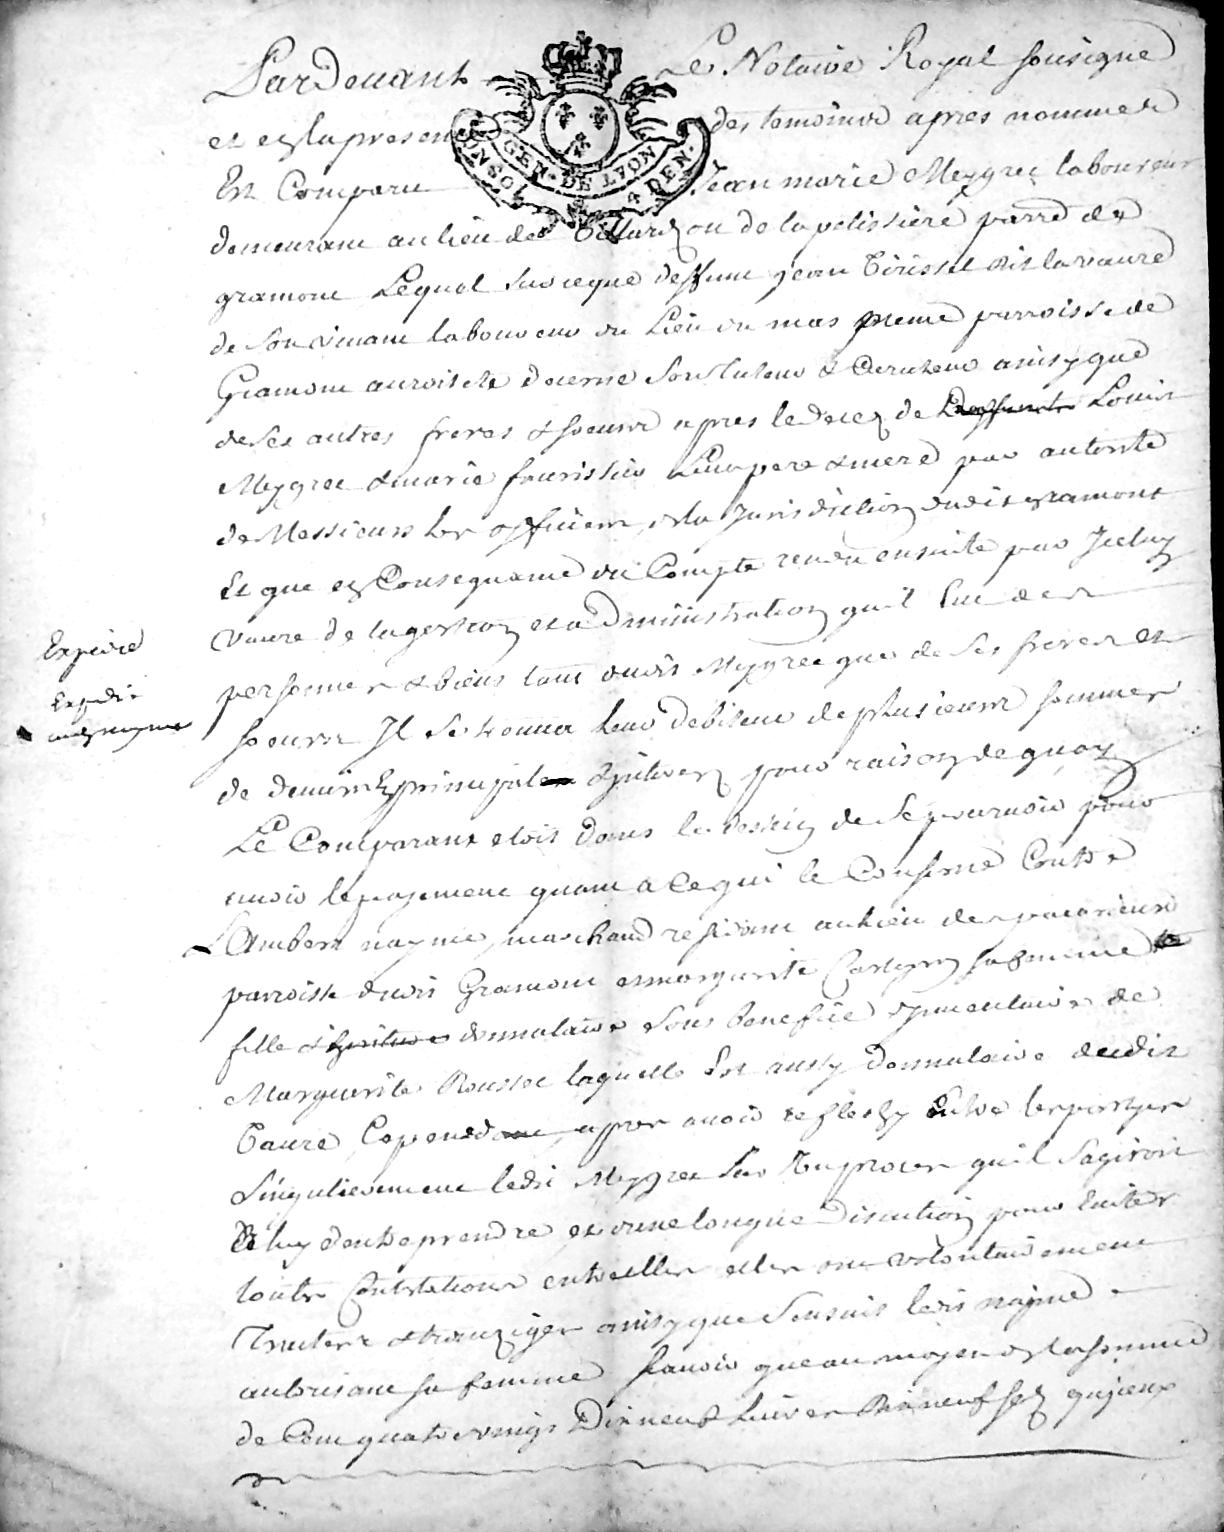 Pardevant Le Notaire Royal sousigne
GEN · DE LYON
4 DEN ·
et en la presence des temoins apres nommes
Est Comparu Jean marie Meygrec laboureur
demeurant au lieu de ou de la pelissiere parre de
gramont Lequel sur ce que deffunt jean dit la vaure
de son vivant laboureur du Lieu du mas meme parroisse de
Gramont auroit ete decerne son tuteur & Curateur ainsy que
de ses autres freres & soeurs apres le decez de Louis
Meygrec & marie leur pere & mere par autorite
de Messieurs les officiers de la Jurisdiction dudit gramont
Et que en Consequance du Compte rendu ensuite par Jceluy
vaure de la gestion et administration quil Eut de
personnes & biens tant dudit Meygrec que de ses freres et
Expedié
soeurs Jl se trouva leur debiteur de plusieurs sommes
Expedié
de deniers principales & jnterez pour raison de quoy
Le Comparant etoit dans le dessein de se pourvoir pour
avoir le payement quant a Ce qui le Conserne Contre
Lambert nayme marchand residant au lieu de
parroisse dudit Gramont et marguerite sa femme
fille & donnataire sous benefice de
Marguerite Rousset laquelle Est ausy donnataire dudit
Vaure, Cependant apres avoir reflechy Entre les partyes
singulierement ledit Meygrec sur Lu proces quil sagiroit
de luy dentreprendre et dune longue Discution pour Eviter
toutes Contestations entrelles elles ont volontairement
Traitter & tranziger ainsy que sensuit ledit nayme
autorisant sa femme scavoir que au moyen de la somme
de Cent quatre vingt Dix neuf Livres Dix neuf sols